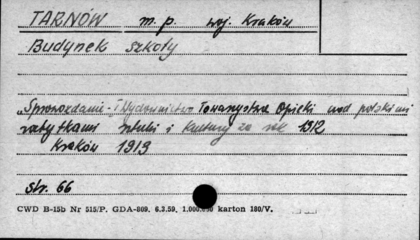 TARNÓW m.p. woj. Kraków
Budynek szkoły
„Sprawozdanie i Wydawnictwo Towarzystwa Opieki nad polskimi
zabytkami sztuki i kultury za rok 1912
Kraków 1913
str. 66
CWD B-15b Nr 515/P. GDA-809. 6.3.59. karton 180/V.